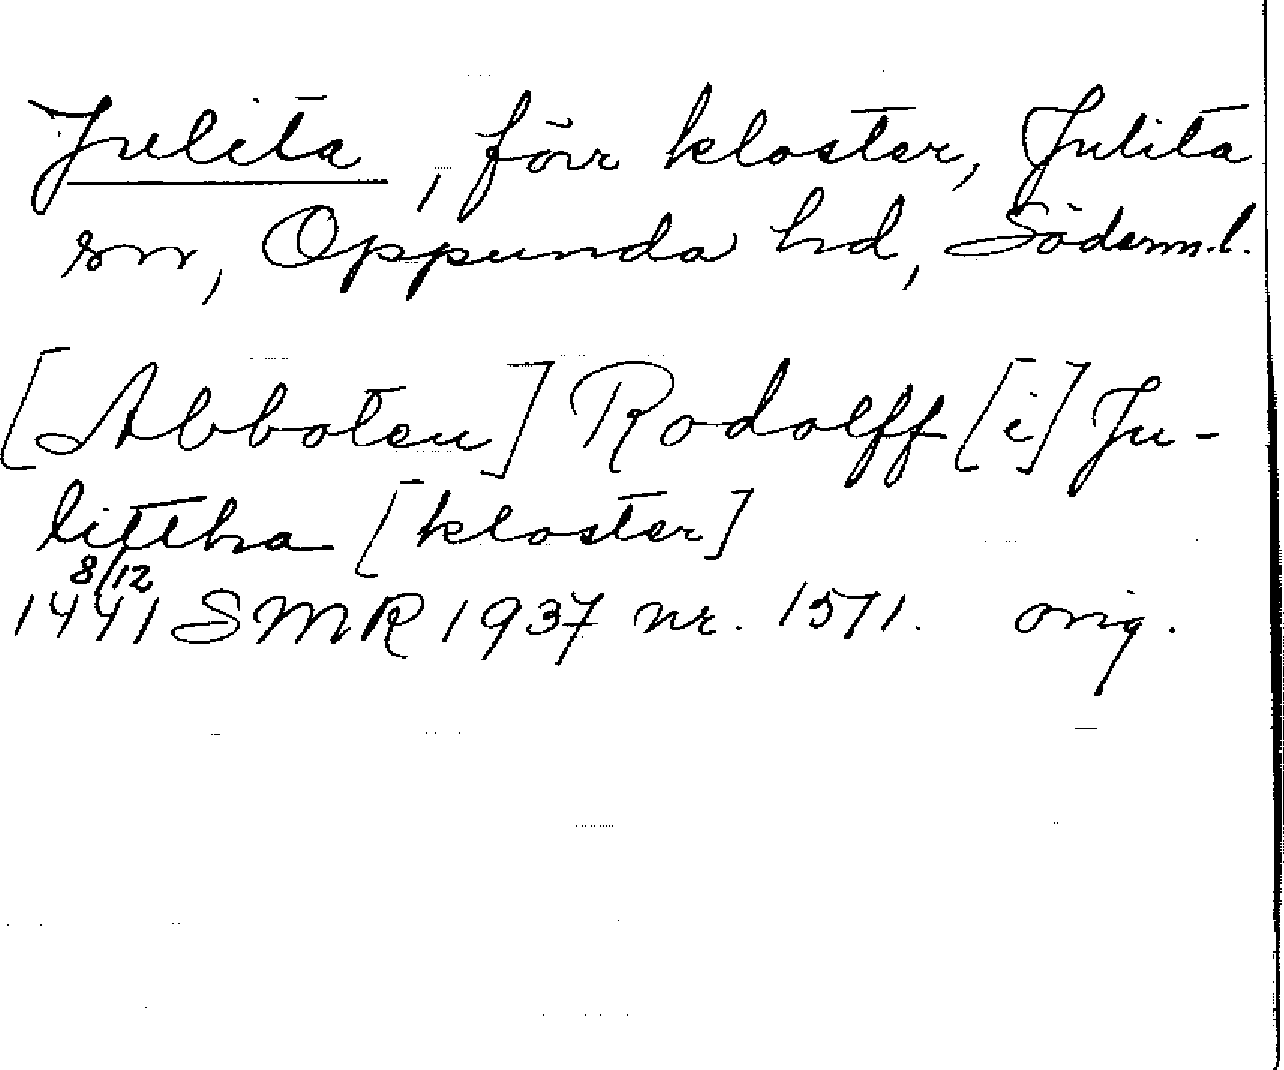 Julita, förr kloster, Julita
sn, Oppunda hd, Söderm.l.
[Abboten] Rodolff [i] Ju-
littha [kloster]
8/12
1441 SMR 1937 nr. 1571. orig.